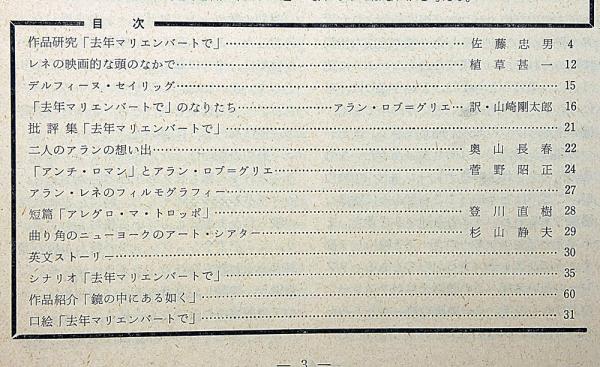 目次
作品研究「去年マリエンバートで」……佐藤忠男 4
レネの映画的な頭のなかで……植草甚一 12
デルフィーヌ・セイリッグ……15
「去年マリエンバートで」のなりたち……アラン・ロブ＝グリエ…訳・山崎剛太郎 16
批評集「去年マリエンバートで」……21
二人のアランの想い出……奥山長春 22
「アンチ・ロマン」とアラン・ロブ＝グリエ……菅野昭正 24
アラン・レネのフィルモグラフィー……27
短篇「アレグロ・マ・トロッポ」……登川直樹 28
曲り角のニューヨークのアート・シアター……杉山静夫 29
英文ストーリー……30
シナリオ「去年マリエンバートで」……35
作品紹介「鏡の中にある如く」……60
口絵「去年マリエンバートで」……31
— 3 —